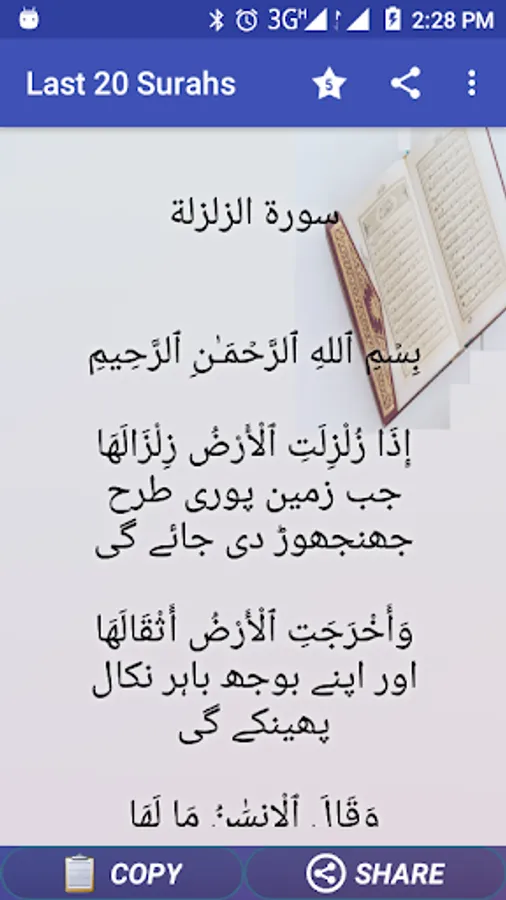 3G H 2:28 PM
Last 20 Surahs 5
سورة الزلزلة
بِسْمِ ٱللهِ ٱلرَّحْمَـٰنِ ٱلرَّحِيمِ
إِذَا زُلْزِلَتِ ٱلْأَرْضُ زِلْزَالَهَا
جب زمین پوری طرح
جھنجھوڑ دی جائے گی
وَأَخْرَجَتِ ٱلْأَرْضُ أَثْقَالَهَا
اور اپنے بوجھ باہر نکال
پھینکے گی
وَقَالَ ٱلْإِنسَٰنُ مَا لَهَا
COPY SHARE